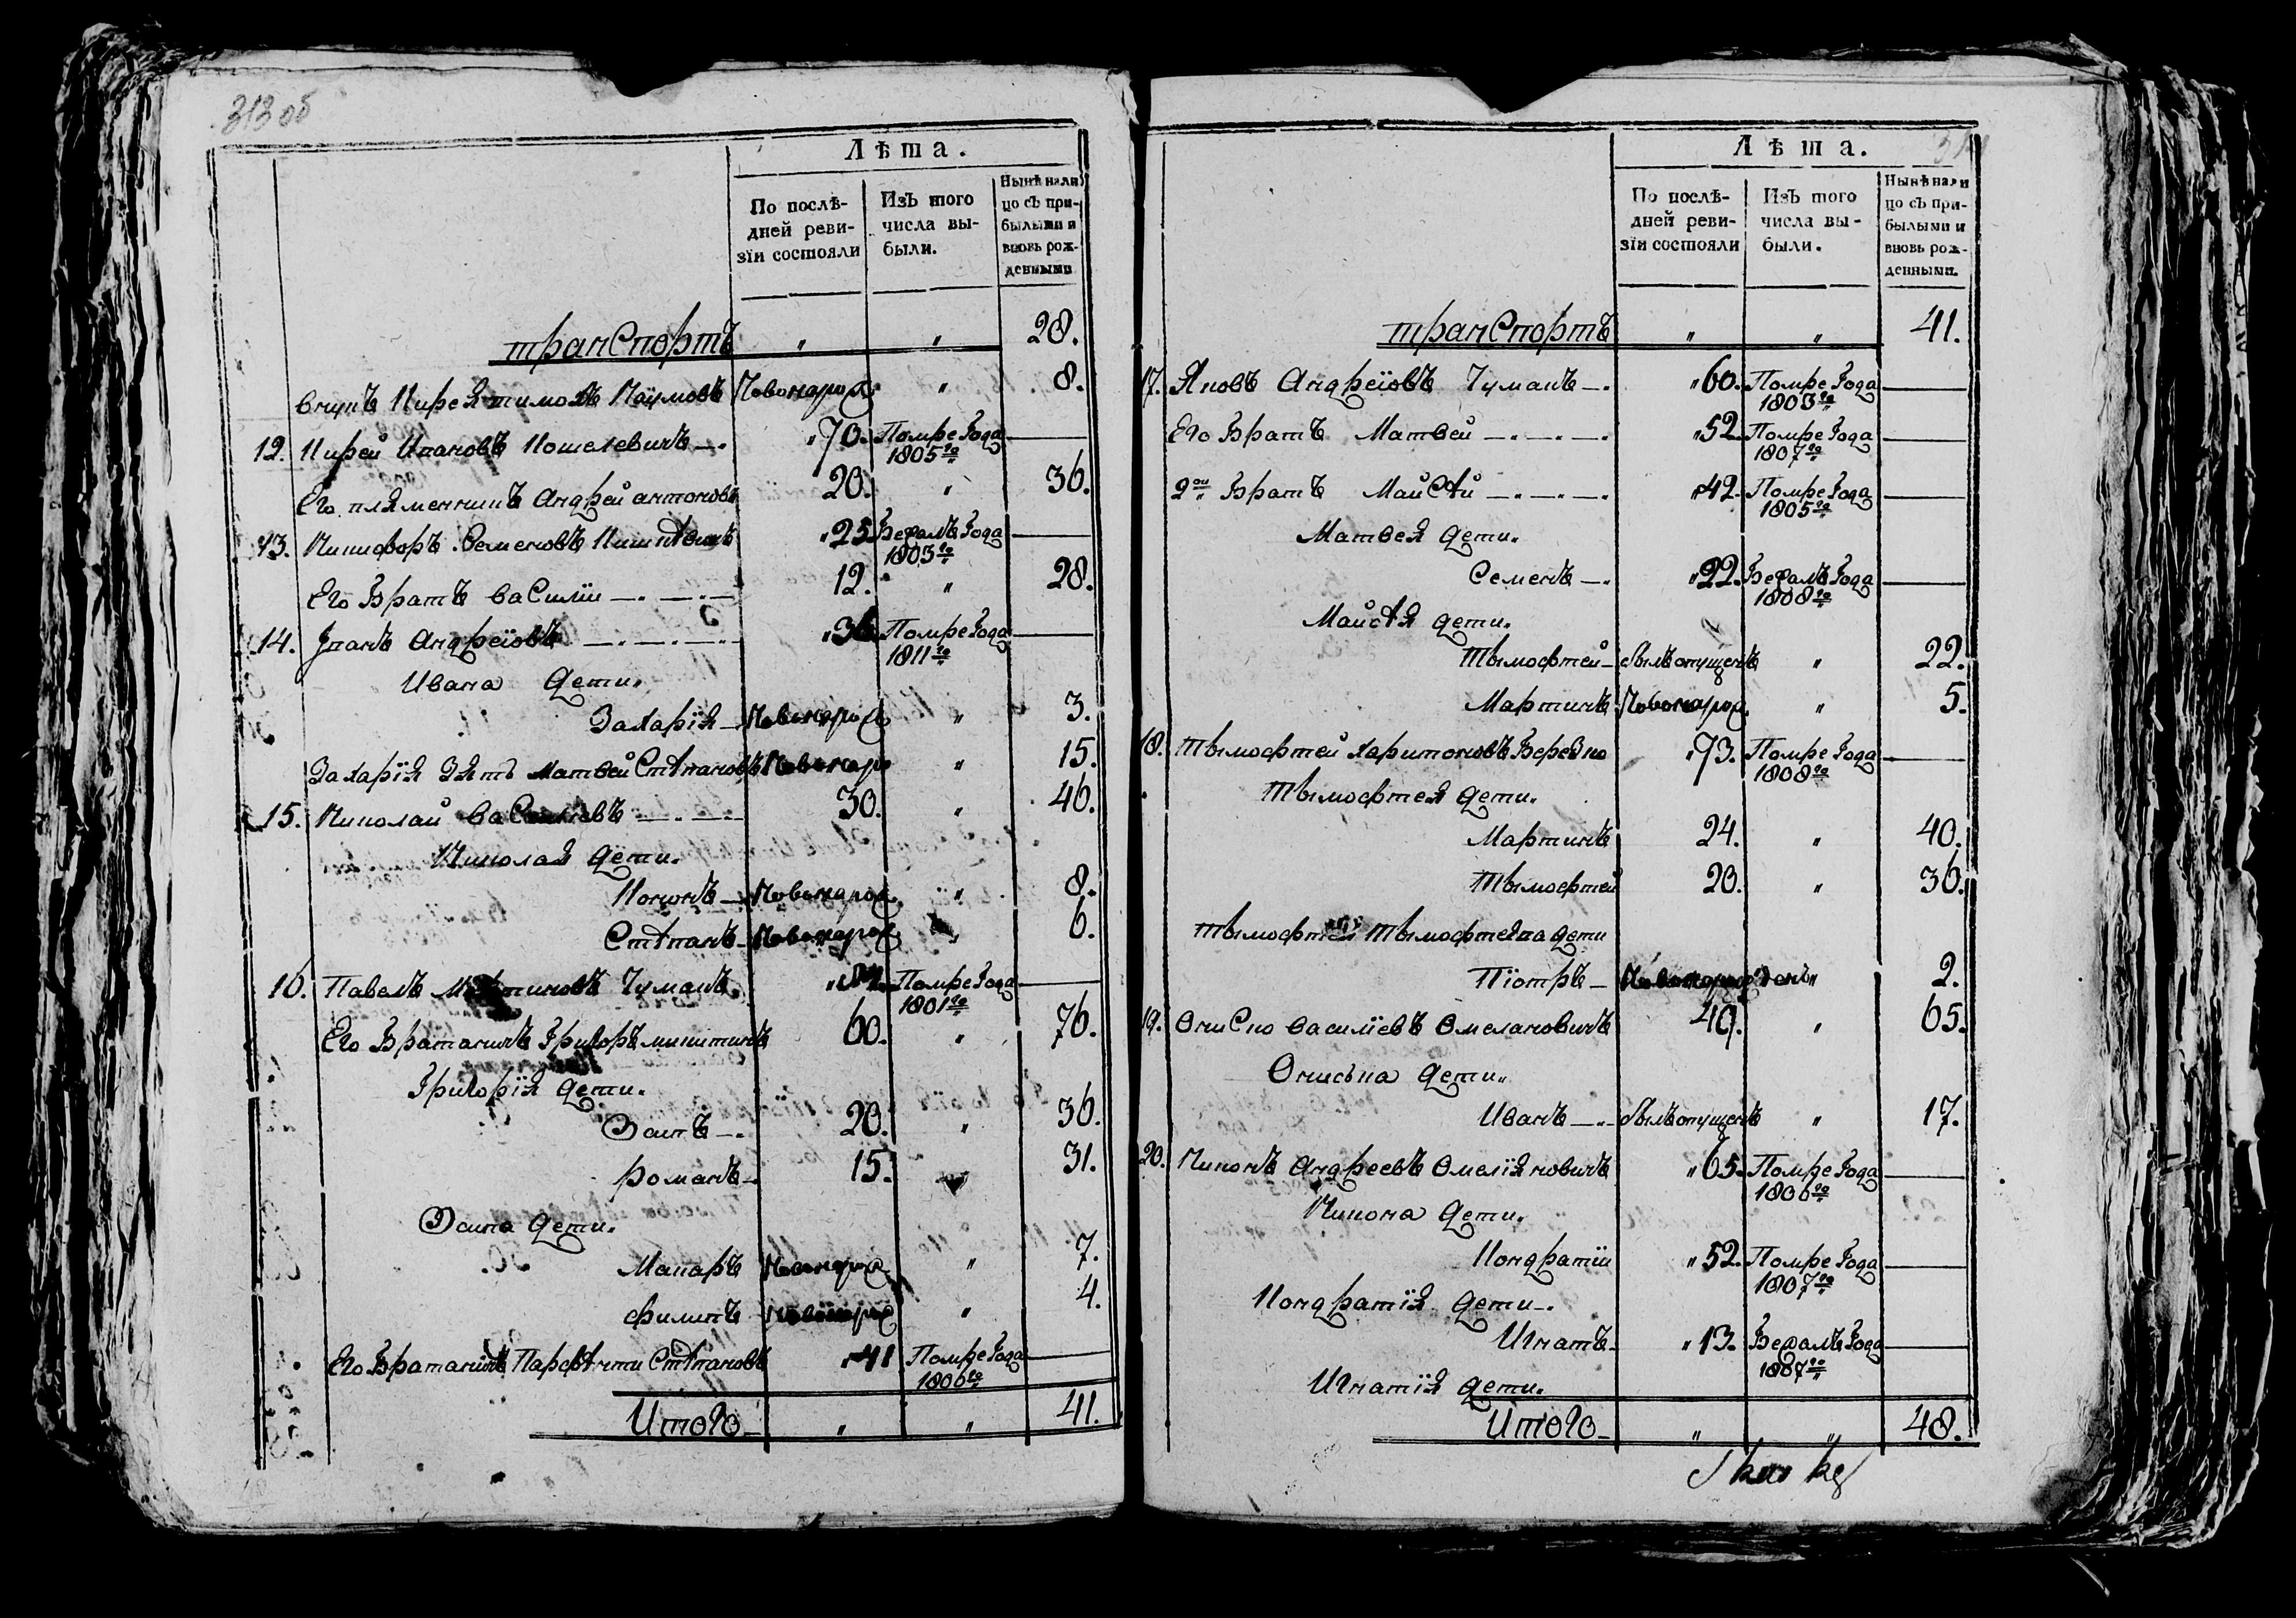 313 об
Лѣта.
По послѣ-
дней реви-
зїи состояли
Изъ того
числа вы-
были.
Нынѣ нали
цо съ при-
былыми и
вновь рож-
денными
транспортъ " " 28.
внукъ Кирея тимохъ Наумовъ Новонарож " 8.
12. Кирей Ивановъ Кошелевичъ "70. Помре года
1805го
Его пляменникъ Андрей антоновъ 20. " 36.
13. Никифоръ Семеновъ "25 Бежалъ года
1803го
Его Братъ василии 12. " 28.
14. Іванъ Андреїовъ "36 Помре года
1811го
Ивана дети.
Захарїя Новонарож " 3.
Захарїя Зять Матвей Стѣпановъ Новонаро " 15.
15. Николай василїевъ 30. " 46.
Николая дети.
Кононъ Новонарож. " 8.
Стѣпанъ Новонарож " 6.
16. Павелъ Мартиновъ Чуманъ Помре года
1801го
Его Братаникъ Григоръ микитинъ 60. " 76.
Григорїя дети.
Осипъ 20. " 36.
романъ 15. " 31.
Осипа дети.
Макаръ Новонарож " 7.
филипъ Новонарож " 4.
Его Братаникъ Парфѣнти Стѣпановъ "41 Помре года
1806го
Итого " " 41.
Лѣта.
По послѣ-
дней реви-
зїи состояли
Изъ того
числа вы-
были.
Нынѣ нали
цо съ при-
былыми и
вновь рож-
денными.
транспортъ " " 41.
17. Яковъ Андреїовъ Чуманъ "60. Помре года
1803го
Его Братъ Матвей "52. Помре года
1807го
2ои Братъ Майсѣй "42. Помре года
1805го
Матвея дети.
Семенъ "22. Бежалъ года
1808го
Майсѣя дети.
Тымофтей былъ опущенъ " 22.
Мартинъ Новонарож. " 5.
18. Тымофтей харитоновъ Верейко "73. Помре года
1808го
Тымофтея дети.
Мартинъ 24. " 40.
Тымофтей 20. " 36.
Тымофтея дети
Пїотръ " 2.
19. Ониско василїевъ Омеляновичъ 49. " 65.
Ониська дети.
Иванъ былъ опущенъ " 17.
20. Никонъ Андреевъ Омеліяновичъ "65. Помре года
1806го
Никона дети.
Кондратїи "52. Помре года
1807го
Кондратїя дети.
Игнатъ "13. Бежалъ года
1807го
Игнатїя дети.
Итого " " 48.